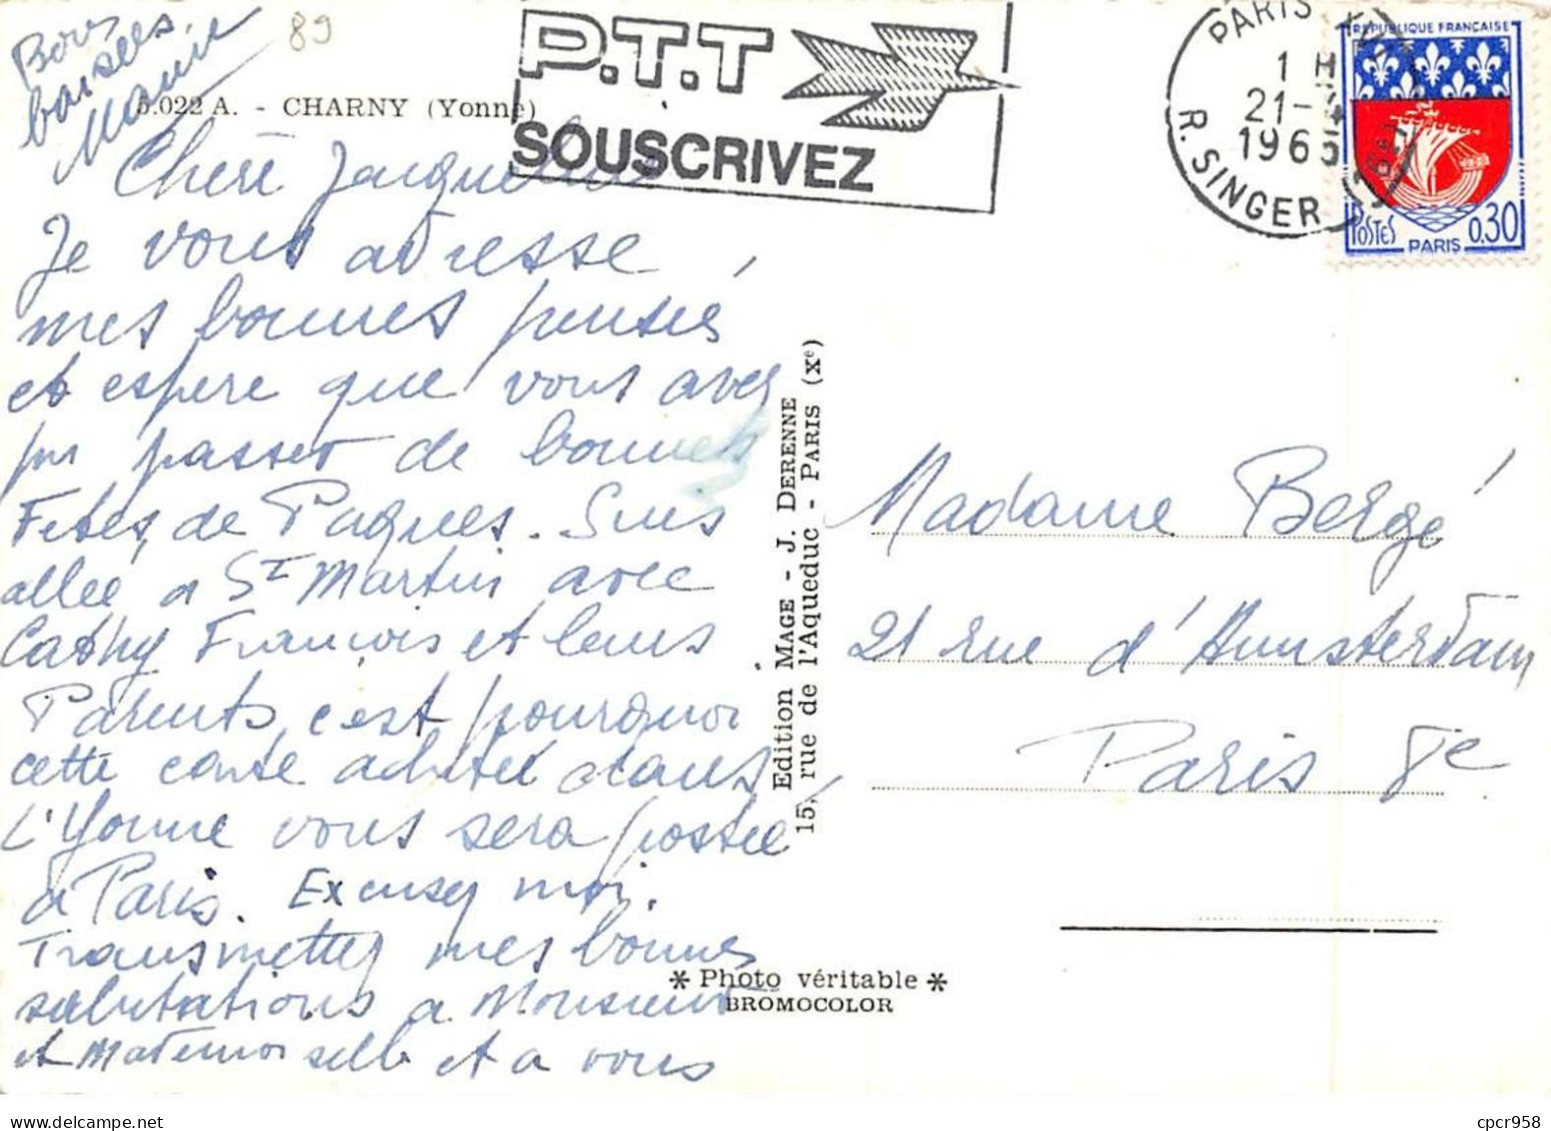 89
P.T.T
SOUSCRIVEZ
PARIS
1 H
21-4
196
R. SINGER
REPUBLIQUE FRANÇAISE
POSTES 0,30
PARIS
5.022 A. - CHARNY (Yonne)
Chère Jacqueline
Je vous adresse
mes bonnes pensées
et espere que vous avez
pu passer de bonnes
Fetes, de Paques. Suis
allée a St Martin avec
Cathy François et leurs
Parents, c'est pourquoi
cette carte acheteé dans
L'Yonne vous sera posteé
a Paris. Excusez moi.
Transmettez mes bonnes
salutations a Monsieur
et Mademoiselle et a vous
Bons
baisers.
Edition MAGE - J. DERENNE
15, rue de l'Aqueduc - PARIS (Xe)
Madame Bergé
21 rue d'Amsterdam
Paris 8e
* Photo véritable *
BROMOCOLOR
cpcr958